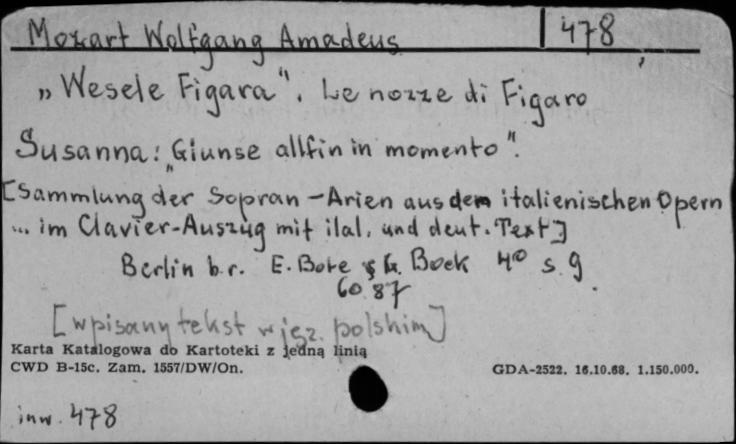 Mozart Wolfgang Amadeus 478
„Wesele Figara". Le nozze di Figaro
Susanna: „Giunse allfin in momento".
[Sammlung der Sopran-Arien aus dem italienischen Opern
... im Clavier-Auszug mit ilal. und deut. Text]
Berlin b.r. E. Bote & G. Bock 4° s. 9.
6087
[wpisany tekst w jęz. polskim]
Karta Katalogowa do Kartoteki z jedną linią
CWD B-15c. Zam. 1557/DW/On. GDA-2522. 16.10.68. 1.150.000.
inw. 478